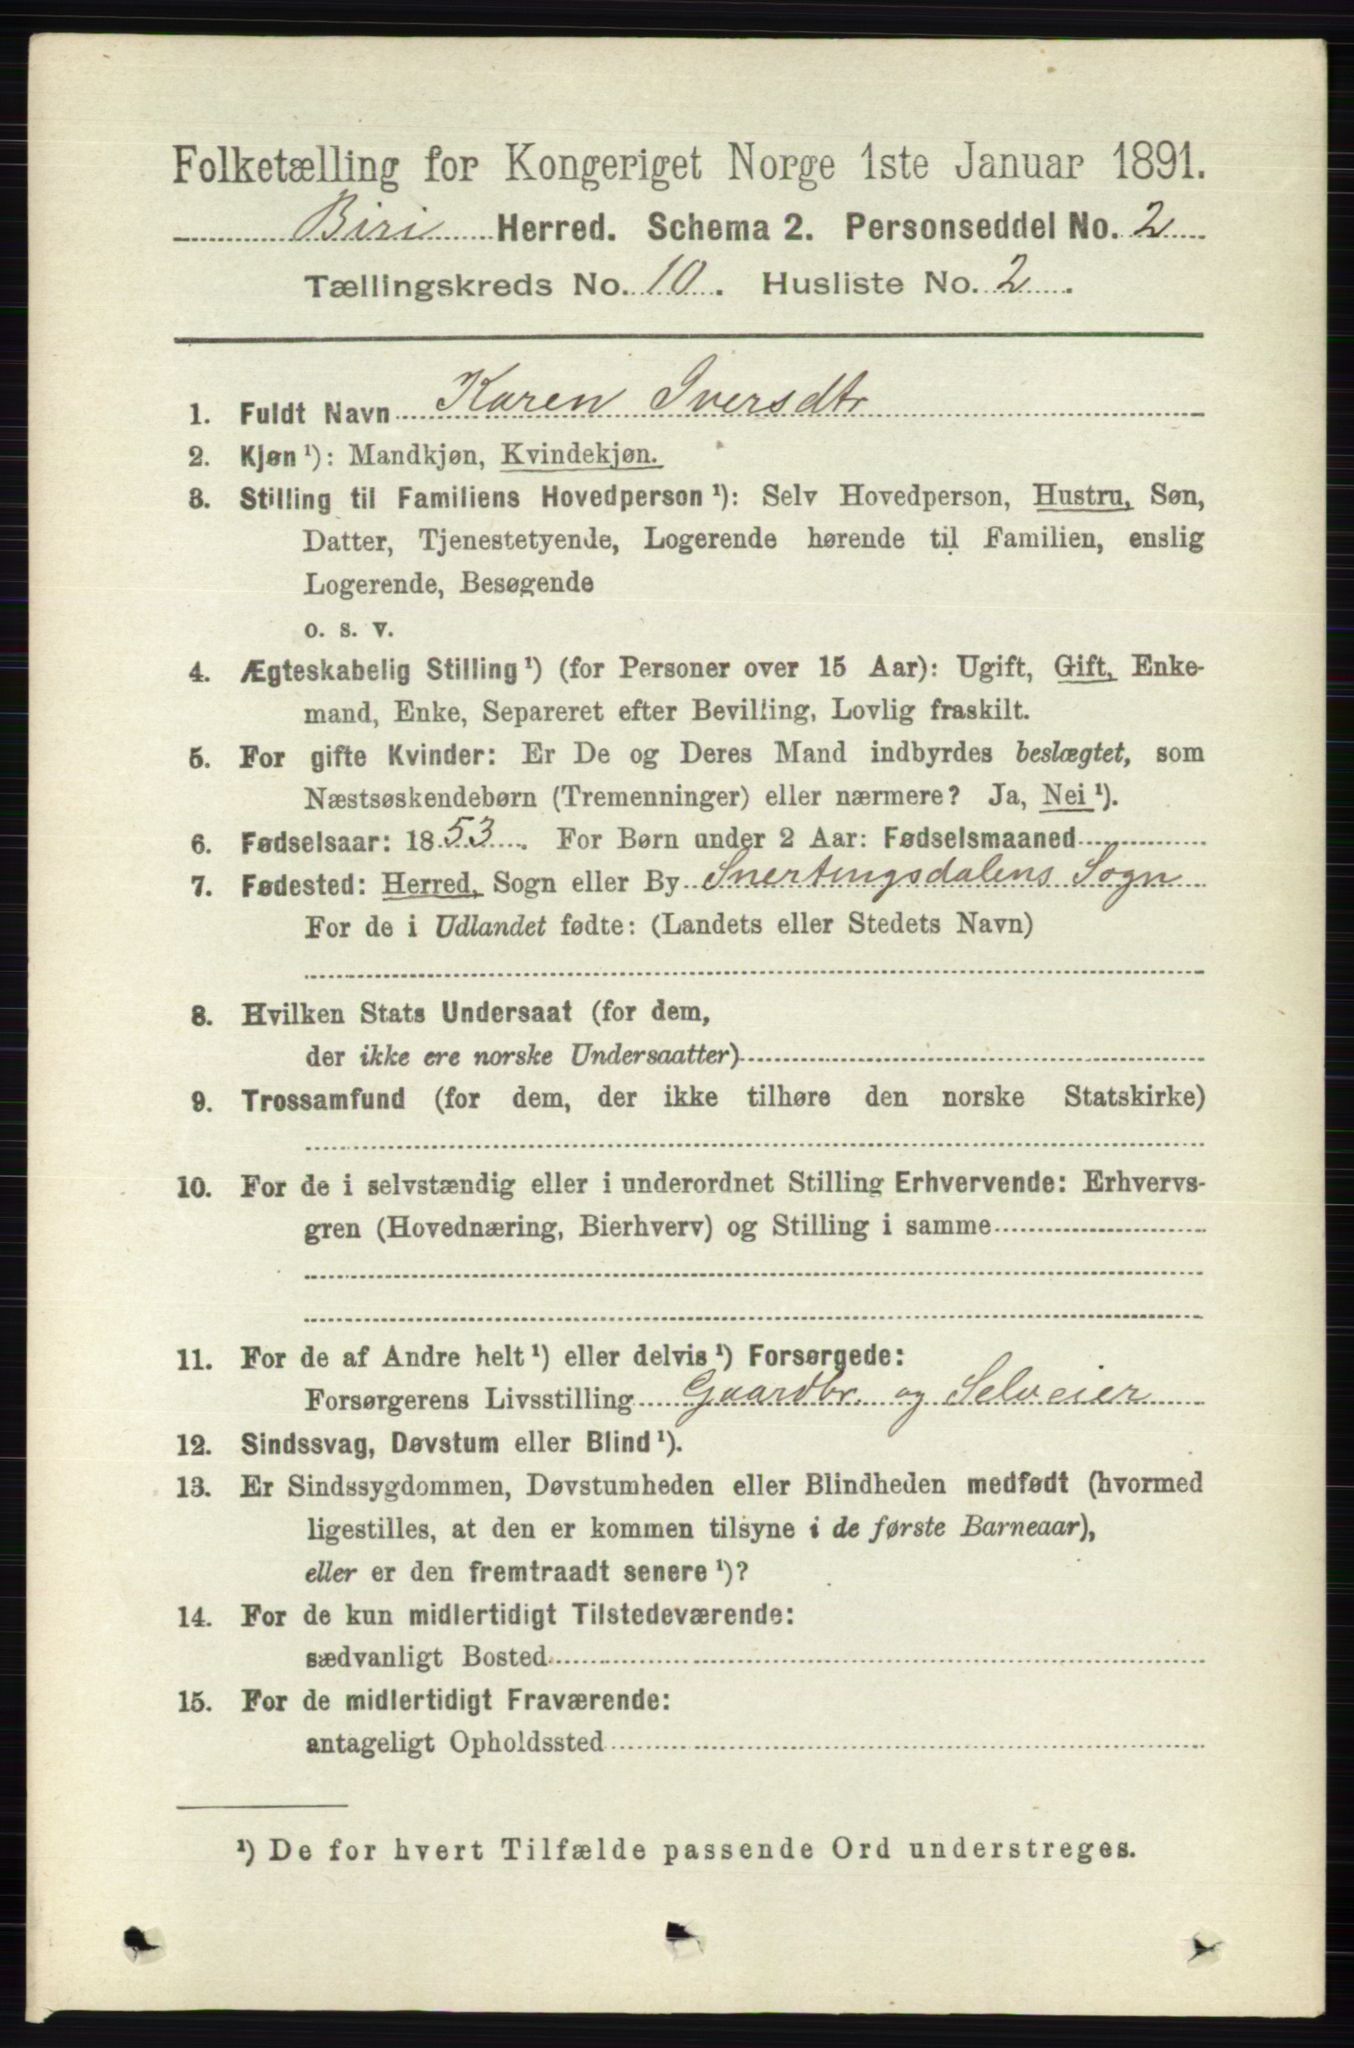 Folketælling for Kongeriget Norge 1ste Januar 1891.
Biri Herred. Schema 2. Personseddel No. 2
Tællingskreds No. 10. Husliste No. 2.
1. Fuldt Navn Karen Iversdtr
2. Kjøn ¹): Mandkjøn, Kvindekjøn.
3. Stilling til Familiens Hovedperson ¹): Selv Hovedperson, Hustru, Søn,
Datter, Tjenestetyende, Logerende hørende til Familien, enslig
Logerende, Besøgende
o. s. v.
4. Ægteskabelig Stilling ¹) (for Personer over 15 Aar): Ugift, Gift, Enke-
mand, Enke, Separeret efter Bevilling, Lovlig fraskilt.
5. For gifte Kvinder: Er De og Deres Mand indbyrdes beslægtet, som
Næstsøskendebørn (Tremenninger) eller nærmere? Ja, Nei ¹).
6. Fødselsaar: 1853. For Børn under 2 Aar: Fødselsmaaned
7. Fødested: Herred, Sogn eller By Snertingsdalens Sogn
For de i Udlandet fødte: (Landets eller Stedets Navn)
8. Hvilken Stats Undersaat (for dem,
der ikke ere norske Undersaatter)
9. Trossamfund (for dem, der ikke tilhøre den norske Statskirke)
10. For de i selvstændig eller i underordnet Stilling Erhvervende: Erhvervs-
gren (Hovednæring, Bierhverv) og Stilling i samme
11. For de af Andre helt ¹) eller delvis ¹) Forsørgede:
Forsørgerens Livsstilling Gaardbr. og Selveier
12. Sindssvag, Døvstum eller Blind ¹).
13. Er Sindssygdommen, Døvstumheden eller Blindheden medfødt (hvormed
ligestilles, at den er kommen tilsyne i de første Barneaar),
eller er den fremtraadt senere ¹)?
14. For de kun midlertidigt Tilstedeværende:
sædvanligt Bosted
15. For de midlertidigt Fraværende:
antageligt Opholdssted
¹) De for hvert Tilfælde passende Ord understreges.